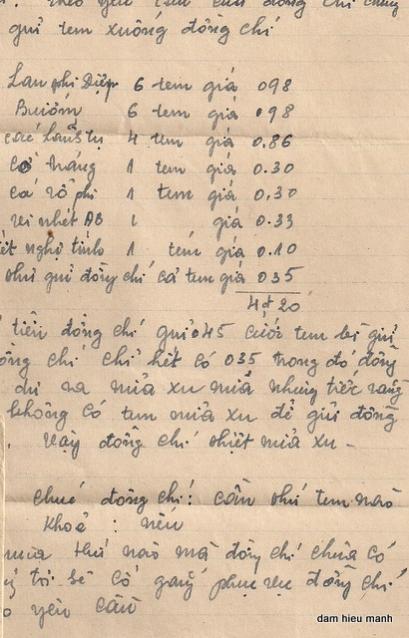 theo yêu cầu của đồng chí chúng
gửi tem xuống đồng chí
Lan phi Điệp 6 tem giá 098
Bướm 6 tem giá 098
các lãnh tụ 4 tem giá 0.86
cờ trắng 1 tem giá 0.30
cá rô phi 1 tem giá 0,30
vi nhét AB 1 giá 0.33
nghệ tĩnh 1 tem giá 0.10
như gửi đồng chí cả tem giá 035
4đ20
tiền đồng chí gửi 045 cước tem bì gửi
chí chỉ hết có 035 trong đó đồng
dư ra nửa xu nữa nhưng tiếc rằng
không có tem nửa xu để gửi đồng
. Vậy đồng chí thiệt nửa xu -
chúc đồng chí: cần thứ tem nào
khoẻ : nếu
mua thứ nào mà đồng chí chưa có
tôi sẽ cố gắng phục vụ đồng chí
yêu cầu
dam hieu manh